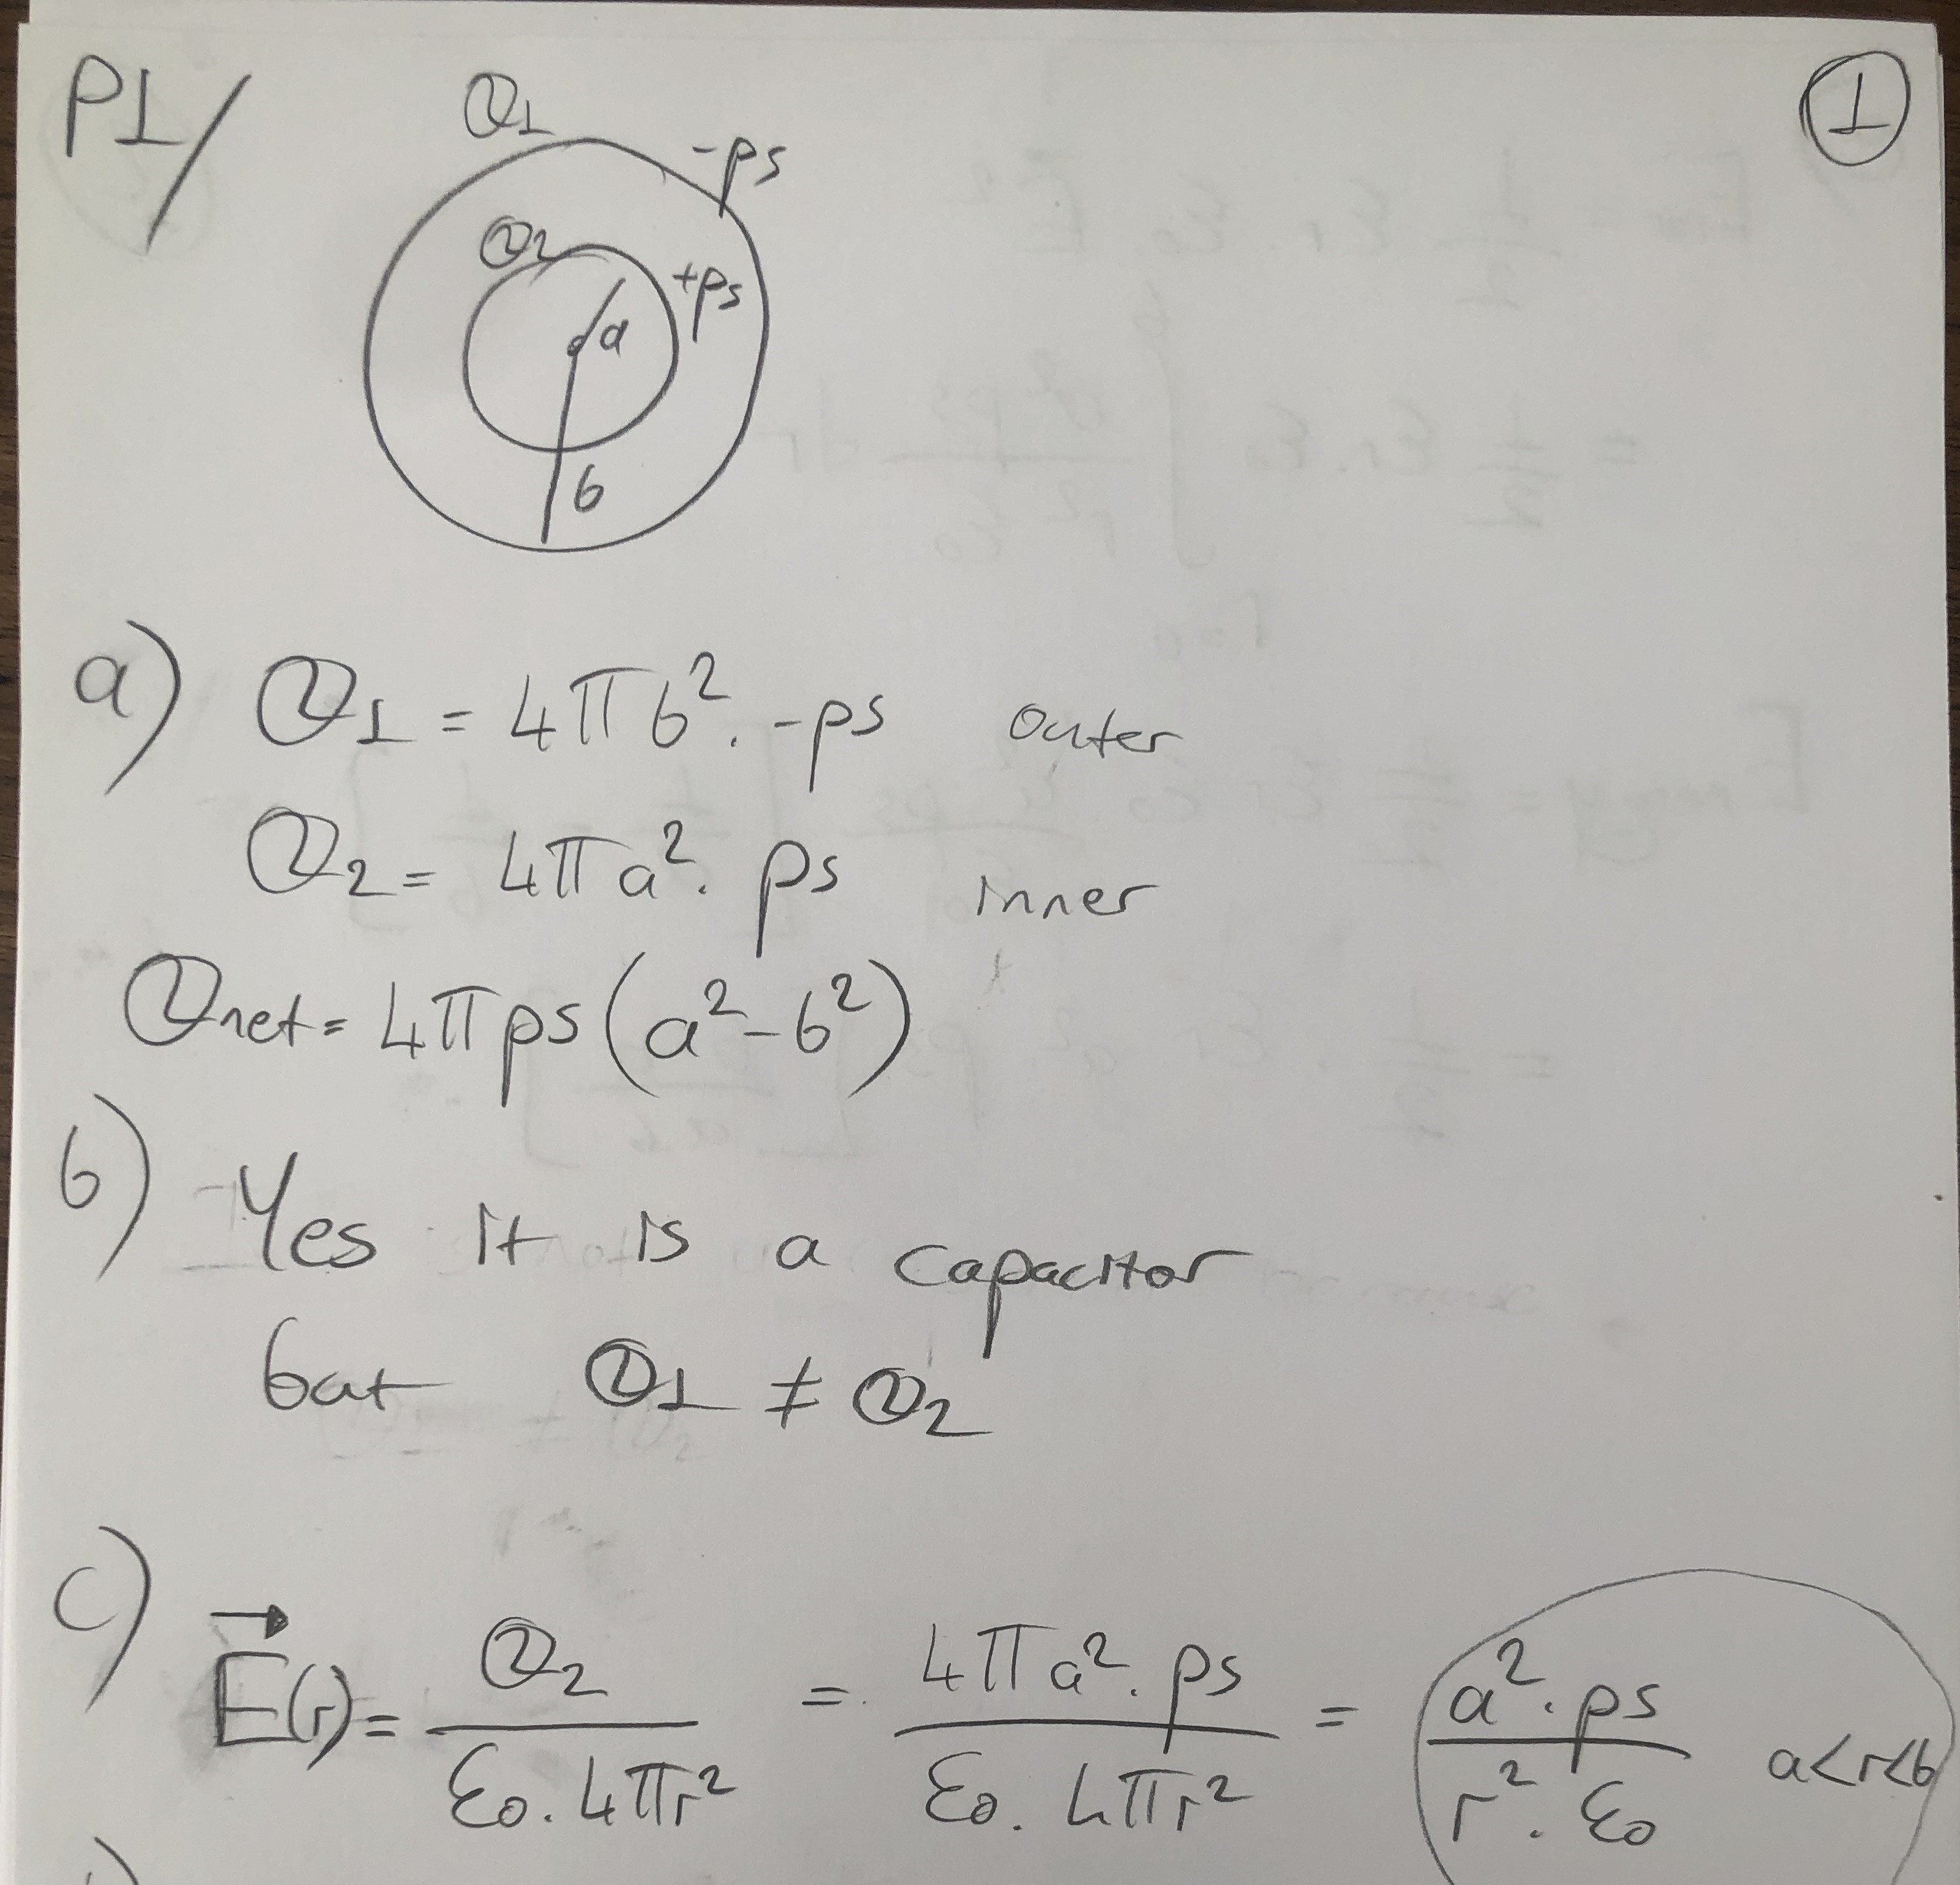 P1/
1
Q1
-ρs
Q2
+ρs
a
b
a) Q1 = 4πb². -ρs outer
Q2 = 4πa². ρs inner
Qnet = 4πρs(a²-b²)
b) Yes it is a capacitor
but Q1 ≠ Q2
c) E⃗(r) = Q2 / ε0.4πr² = 4πa².ρs / ε0.4πr² = a².ρs / r².ε0 a<r<b